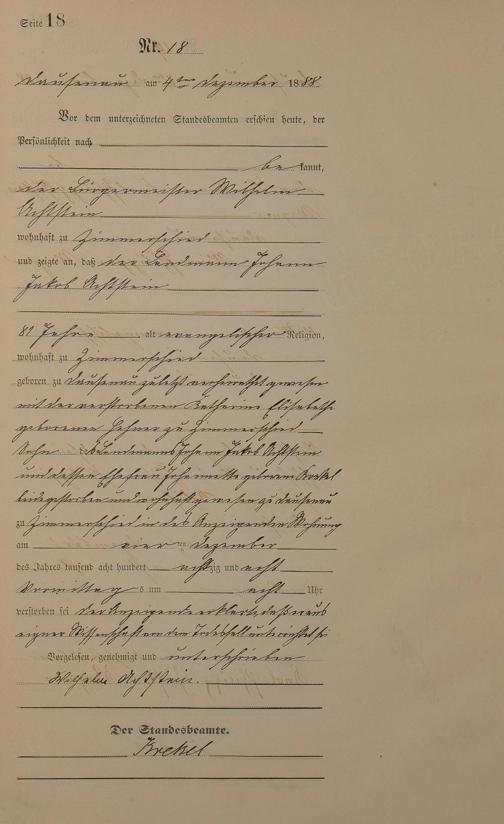 Seite 18
Nr. 18
Dausenau am 4ten Dezember 1888
Vor dem unterzeichneten Standesbeamten erschien heute, der
Persönlichkeit nach
be kannt,
der Bürgermeister Wilhelm
Achtstein
wohnhaft zu Zimmerschied
und zeigte an, daß der Landmann Johann
Jakob Achtstein
82 Jahre alt evangelischer Religion,
wohnhaft zu Zimmerschied
geboren zu Dausenau zuletzt verheirathet gewesen
mit der verstorbenen Katharine Elisabethe
geborenen zu Zimmerschied
Sohn des Landmanns Johann Jakob Achtstein
und dessen Ehefrau Johannette geboren Krekel
beide gestorben und wohnhaft gewesen zu Dausenau
zu Zimmerschied in des Anzeigenden Wohnung
am vier ten Dezember
des Jahres tausend acht hundert achtzig und acht
Vormittags um acht Uhr
verstorben sei der Anzeigende erklärte, daß er aus
eigner Wissenschaft von dem Todesfall unterrichtet sei
Vorgelesen, genehmigt und unterschrieben
Wilhelm Achtstein.
Der Standesbeamte.
Krekel